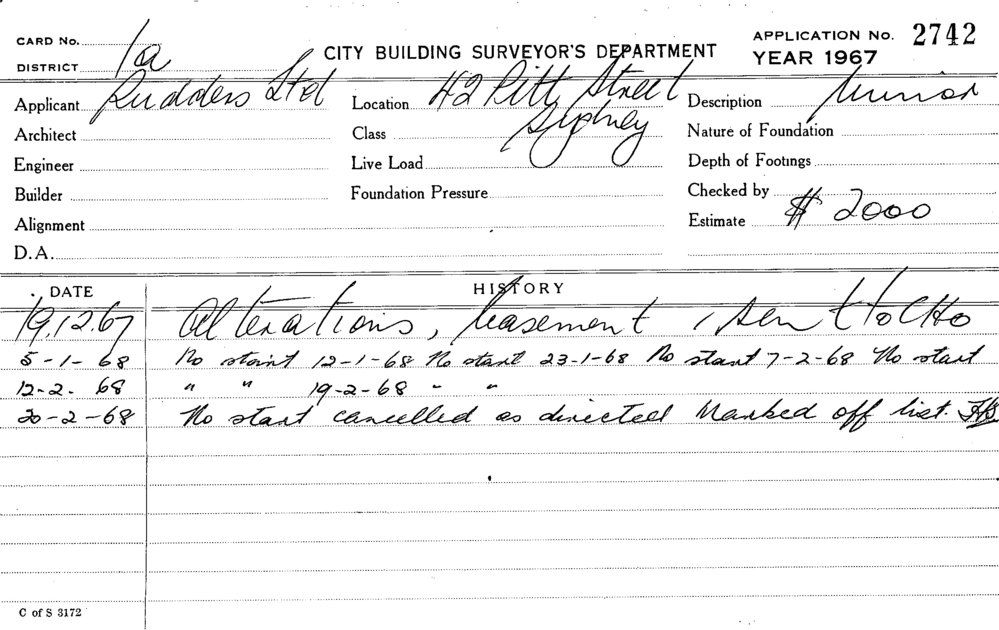 CARD No.
CITY BUILDING SURVEYOR'S DEPARTMENT
APPLICATION No. 2742
DISTRICT 1a
YEAR 1967
Applicant Rudders Ltd Location 42 Pitt Street Sydney Description Minor
Architect Class Nature of Foundation
Engineer Live Load Depth of Footings
Builder Foundation Pressure Checked by
Alignment Estimate $ 2000
D.A.
DATE HISTORY
19.12.67 Alterations, basement, sent to CHO
5-1-68 No start 12-1-68 No start 23-1-68 No start 7-2-68 No start
12-2-68 " " 19-2-68 " "
20-2-68 No start cancelled as directed Marked off list.
C of S 3172